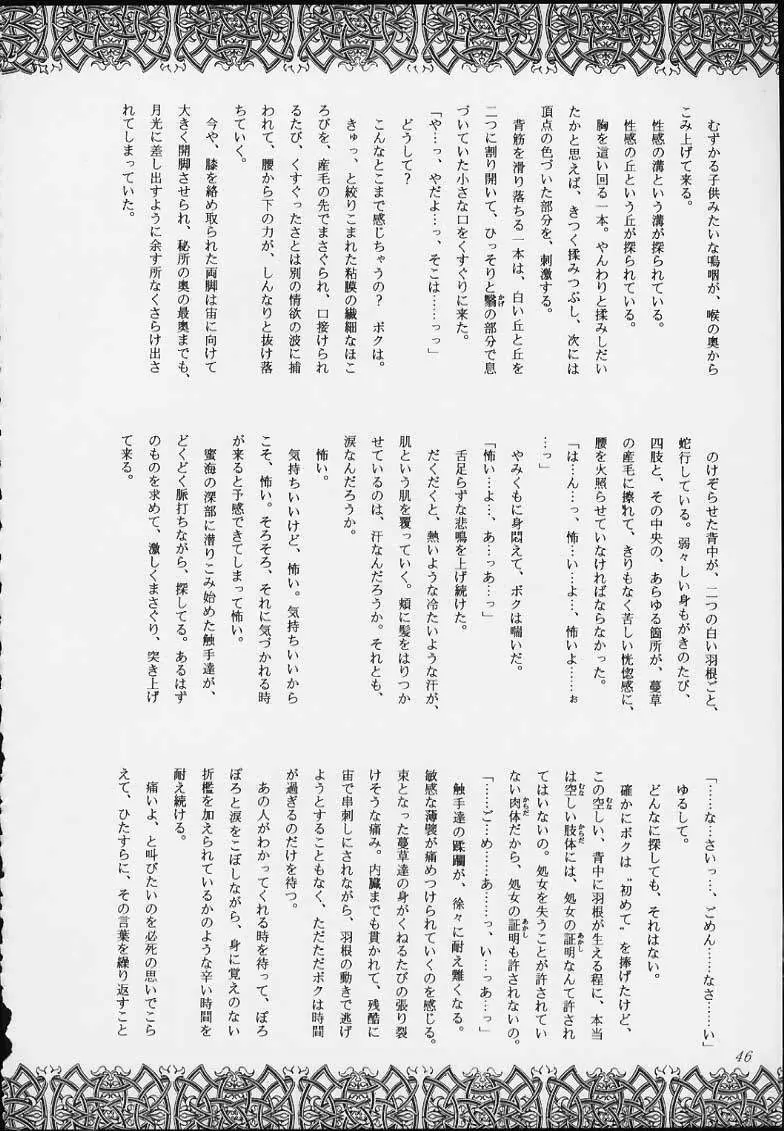 むずかる子供みたいな嗚咽が、喉の奥から
こみ上げて来る。
性感の溝という溝が探られている。
性感の丘という丘が探られている。
胸を這い回る一本。やんわりと揉みしだい
たかと思えば、きつく揉みつぶし、次には
頂点の色づいた部分を、刺激する。
背筋を滑り落ちる一本は、白い丘と丘を
二つに割り開いて、ひっそりと翳の部分で息
づいていた小さな口をくすぐりに来た。
「や…っ、やだよ…っ、そこは……っっ」
どうして?
こんなとこまで感じちゃうの? ボクは。
きゅっ、と絞りこまれた粘膜の繊細なほこ
ろびを、産毛の先でまさぐられ、口接けられ
るたび、くすぐったさとは別の情欲の波に捕
われて、腰から下の力が、しんなりと抜け落
ちていく。
今や、膝を絡め取られた両脚は宙に向けて
大きく開脚させられ、秘所の奥の最奥までも、
月光に差し出すように余す所なくさらけ出さ
れてしまっていた。
のけぞらせた背中が、二つの白い羽根ごと、
蛇行している。弱々しい身もがきのたび、
四肢と、その中央の、あらゆる箇所が、蔓草
の産毛に擦れて、きりもなく苦しい恍惚感に、
腰を火照らせていなければならなかった。
「は…ん…っ、怖…い…よ…、怖いよ……ぉ
…っ」
やみくもに身悶えて、ボクは喘いだ。
「怖い…よ…、あ…っあ…っ」
舌足らずな悲鳴を上げ続けた。
だくだくと、熱いような冷たいような汗が、
肌という肌を覆っていく。頬に髪をはりつか
せているのは、汗なんだろうか。それとも、
涙なんだろうか。
怖い。
気持ちいいけど、怖い。気持ちいいから
こそ、怖い。そろそろ、それに気づかれる時
が来ると予感できてしまって怖い。
蜜海の深部に潜りこみ始めた触手達が、
どくどく脈打ちながら、探してる。あるはず
のものを求めて、激しくまさぐり、突き上げ
て来る。
「……な…さい…っ…、ごめん……なさ……い」
ゆるして。
どんなに探しても、それはない。
確かにボクは“初めて”を捧げたけど、
この空しい、背中に羽根が生える程に、本当
は空しい肢体には、処女の証明なんて許され
てはいないの。処女を失うことが許されてい
ない肉体だから、処女の証明も許されないの。
「……ご…め……あ……っ、い…っあ…っ」
触手達の蹂躙が、徐々に耐え難くなる。
敏感な薄襞が痛めつけられていくのを感じる。
束となった蔓草達の身がくねるたびの張り裂
けそうな痛み。内臓までも貫かれて、残酷に
宙で串刺しにされながら、羽根の動きで逃げ
ようとすることもなく、ただただボクは時間
が過ぎるのだけを待つ。
あの人がわかってくれる時を待って、ぽろ
ぽろと涙をこぼしながら、身に覚えのない
折檻を加えられているかのような辛い時間を
耐え続ける。
痛いよ、と叫びたいのを必死の思いでこら
えて、ひたすらに、その言葉を繰り返すこと
46